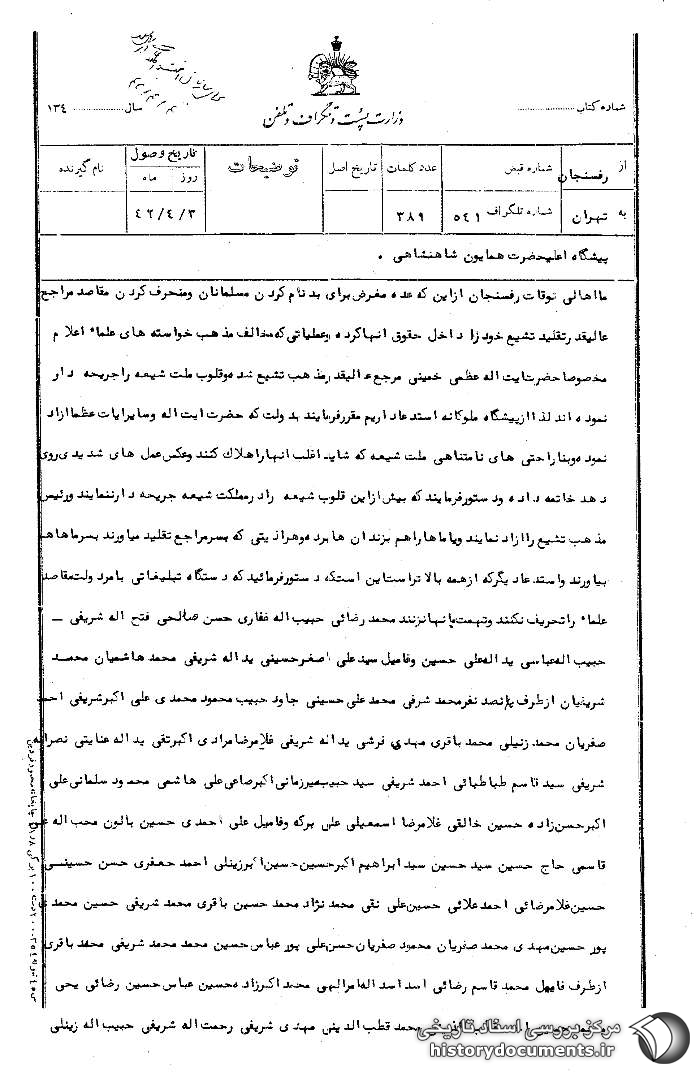 شماره کتاب
سال ۱۳۴۰
وزارت پست و تلگراف و تلفن
از رفسنجان
شماره قبض
عدد کلمات
تاریخ اصل
توضیحات
تاریخ وصول
روز ماه
نام گیرنده
به تهران
شماره تلگراف ۵۴۱
۳۸۹
۴۲/۴/۳
پیشگاه اعلیحضرت همایون شاهنشاهی .
مااهالی نوقات رفسنجان ازاین که عده مغرض برای بدنام کردن مسلمانان ومنحرف کردن مقاصد مراجع
عالیقدرتقلید تشیع خودرا داخل حقوق انهاکرده وعملیاتی که مخالف مذهب خواسته های علماء اعلام
مخصوصا حضرت ایت اله عظمی خمینی مرجع عالیقدر مذهب تشیع شده وقلوب ملت شیعه راجریحه دار
نموده اند لذا ازپیشگاه ملوکانه استدعاداریم مقررفرمایند بدولت که حضرت ایت اله وسایرایات عظماازاد
نموده وبناراحتی های نامتناهی ملت شیعه که شاید اغلب انهاراهلاک کنند وعکس عمل های شدیدی روی
دهد خاتمه داده ودستورفرمایند که بیش ازاین قلوب شیعه رادرمملکت شیعه جریحه دارننمایند ورئیس
مذهب تشیع راازاد نمایند ویاماهاراهم بزندان هابرده وهراذیتی که بسرمراجع تقلید میاورند بسرماهاهم
بیاورند واستدعادیگرکه ازهمه بالاتراست این استکه دستورفرمائید که دستگاه تبلیغاتی بامردولت مقاصد
علماء راتحریف نکنند وتهمت بانهانزنند محمد رضائی حبیب اله غفاری حسن صالحی فتح اله شریفی _
حبیب اله عباسی یداله علی حسین وفامیل سیدعلی اصغرحسینی یداله شریفی محمد هاشمیان محمد
شریفیان ازطرف پانصد نفرمحمد شرفی محمد علی حسینی جاود حبیب محمود محمدی علی اکبرشریفی احمد
صفریان محمد زینلی محمد باقری مهدی فرشی یداله شریفی غلامرضامرادی اکبرتقی یداله عنایتی نصراله
شریفی سید قاسم طباطبائی احمد شریفی سید حبیب میرزمانی اکبرصاعی علی هاشمی محمود سلمانی علی
اکبرحسن زاده حسین خالقی غلامرضا اسمعیلی علی برکه وفامیل علی احمدی حسین بالون محب اله
قاسمی حاج حسین سید حسین سیدابراهیم اکبرحسین حسین اکبرزینلی احمد جعفری حسن حسینی
حسین غلامرضائی احمد علائی حسین علی نقی محمد نژاد محمد حسین باقری محمد شریفی حسین محمدی
پور حسین مهدی محمد صفریان محمود صفریان حسن علی پور عباس حسین محمد محمد شریفی محمد باقری
ازطرف فامیل محمد قاسم رضائی اسد اسداله امرالهی محمد اکبرزاده حسین عباس حسین رضائی یحی
محمد قطب الدینی مهدی شریفی رحمت اله شریفی حبیب اله زینلی
مرکز بررسی اسناد تاریخی
historydocuments.ir